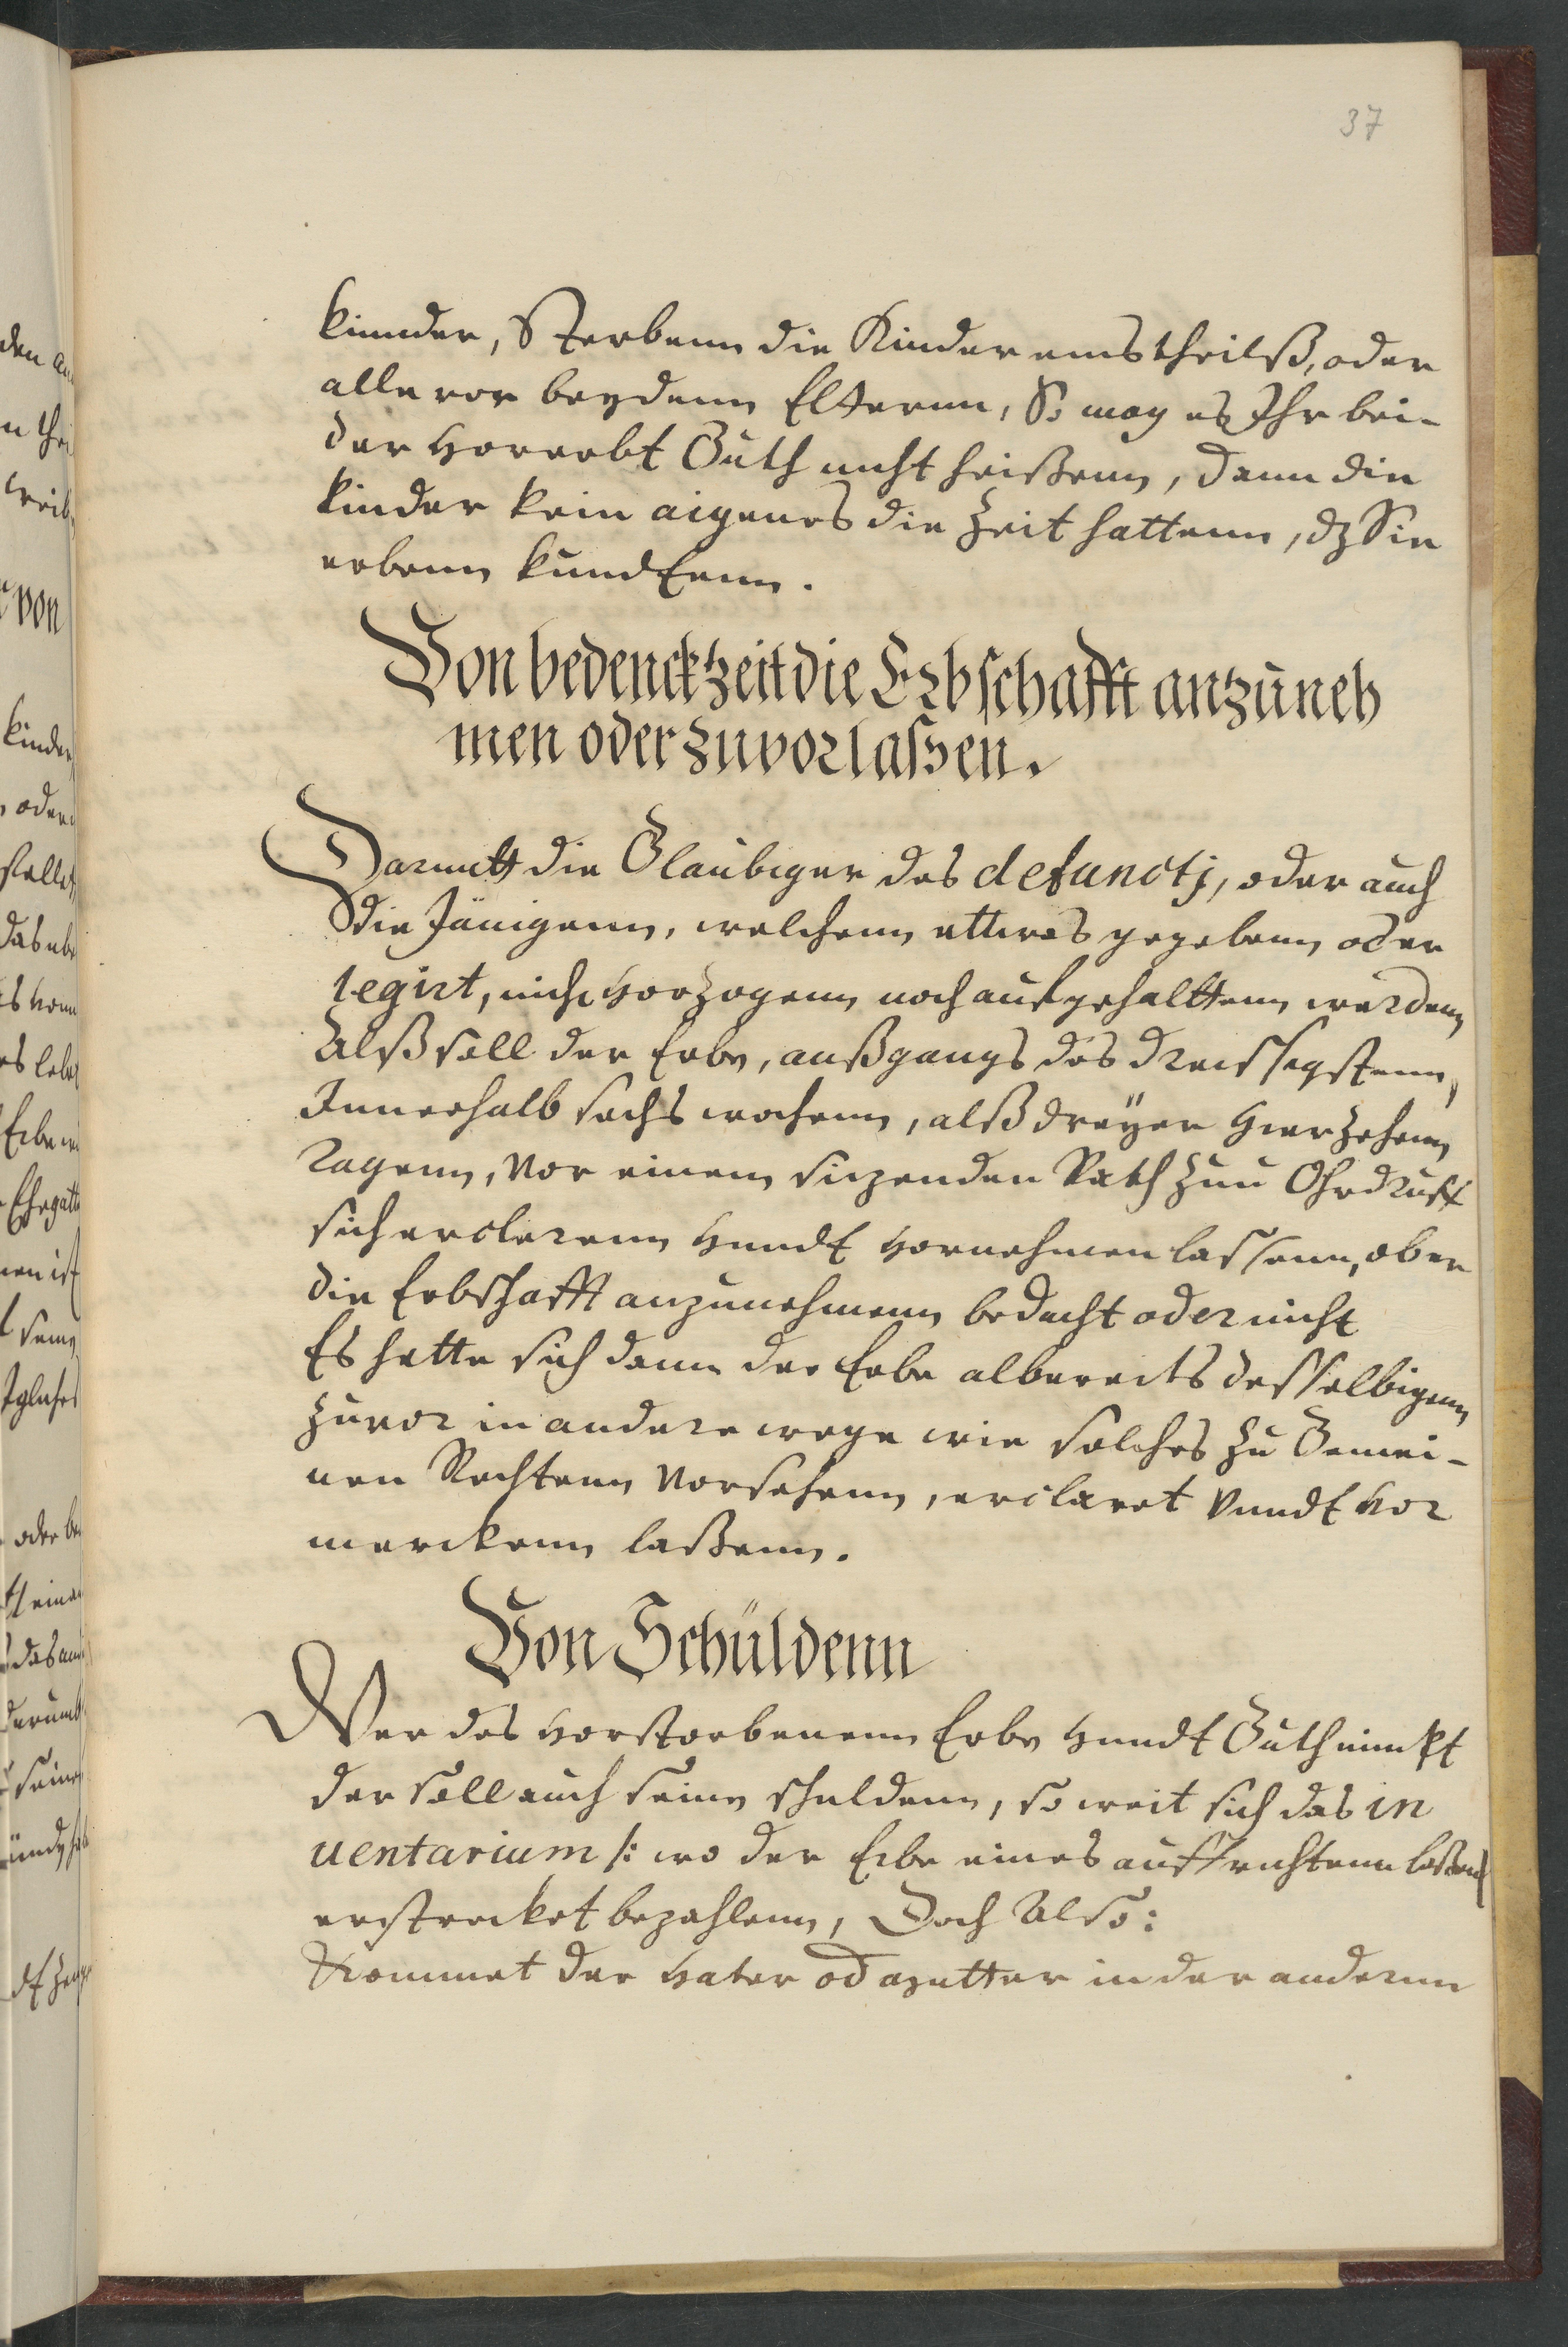 37
kinnder, Sterbenn die Kinder einstheilß, oder
alle vor beydenn Elternn, So mag es Ihr bei-
der vorerbt Guth nicht heißenn, dann die
kinder kein aigenes die Zeit hattenn, dz Sie
erbenn kundtenn.
Von bedenckzeit die Erbschafft anzuneh
men oder zuvorlaßen.
Darmitt die Glaubiger des defunctj, oder auch
die Jänigenn, welchenn ettwas gegebenn oder
legirt, nicht vorzogenn noch aufgehalttenn werdenn,
Alß soll der Erbe, außgangs des dreissigstenn,
Innerhalb sechs wochenn, alß dreyer vierzehenn
Tagenn, vor einem sizenden Rath zuu Ohrdruff
sich erclerenn vnndt vornehmen lassenn, ob er
die Erbschafft anzunehmenn bedacht oder nicht
Es hette sich dann der Erbe albereits desselbigenn
zuvor in andere wege wie solches zu Gemei-
nen Rechtenn vorsehenn, ercläret vnndt vor
merckenn laßenn.
Von Schüldenn
Wer des vorstorbenenn Erbe vnndt Guth nimpt
der soll auch seine schuldenn, so weit sich das in
uentarium /: wo der Erbe eines auffrichtenn laßenn
erstrecket bezahlenn, Doch Also:
Kommet der Vater od Mutter in der anderenn